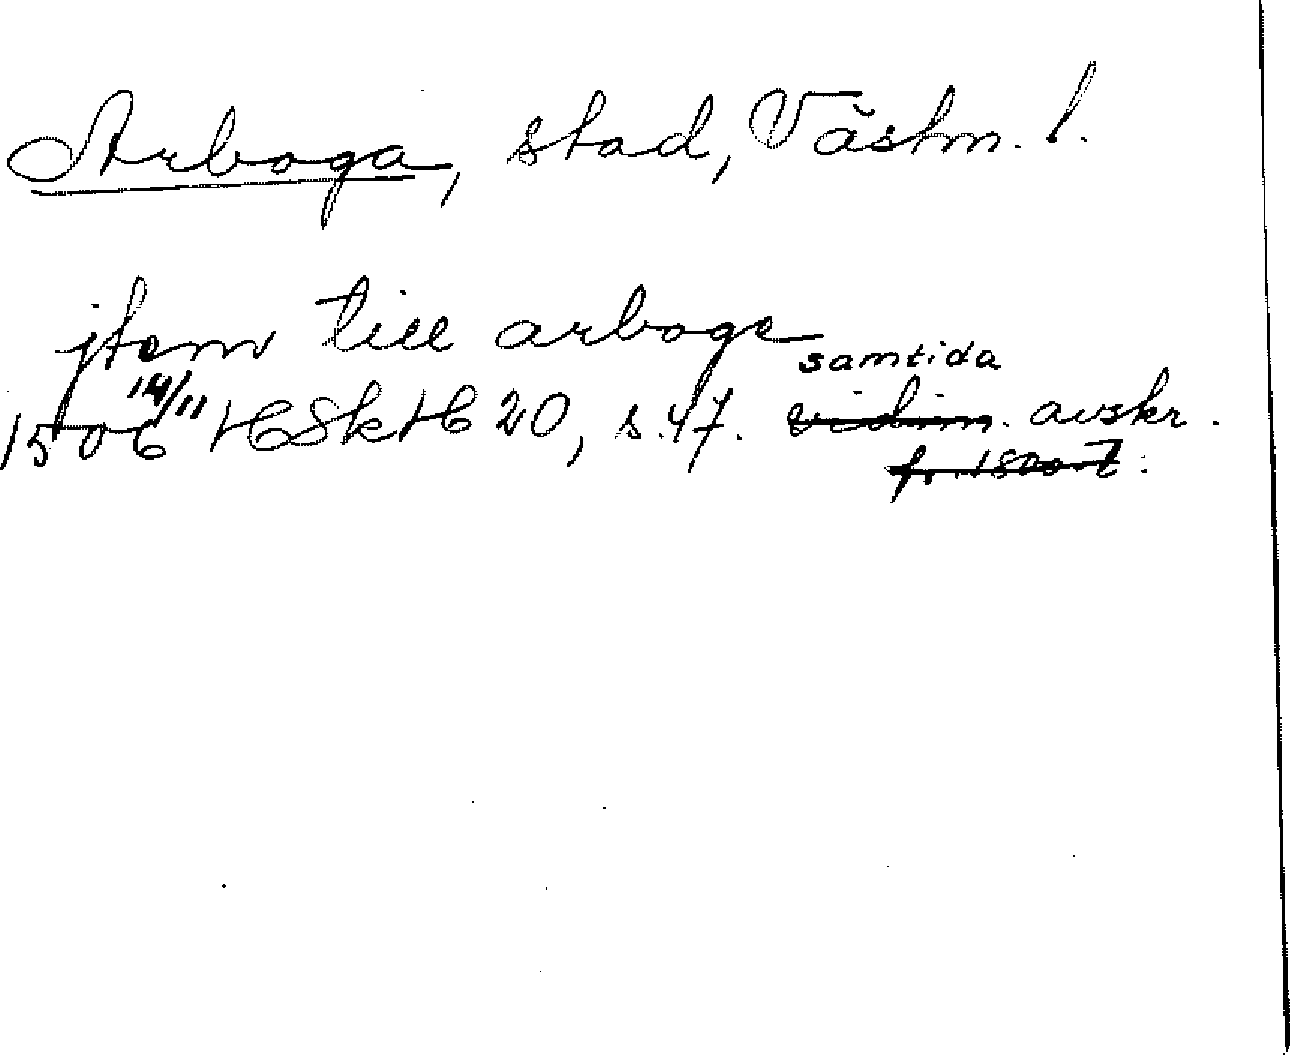 Arboga, stad, Västm. l.
jtem till arboge
samtida
1506 14/11 HSkH 20, s. 47. vidim. avskr.
fr. 1800-t.